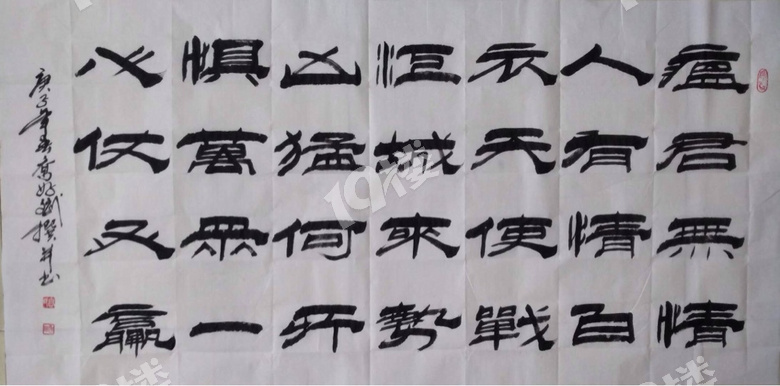 瘟君無情
人有情白
衣天使戰
江城來勢
凶猛何所
懼萬眾一
心仗必贏
庚子年春高好斌撰并书
19楼